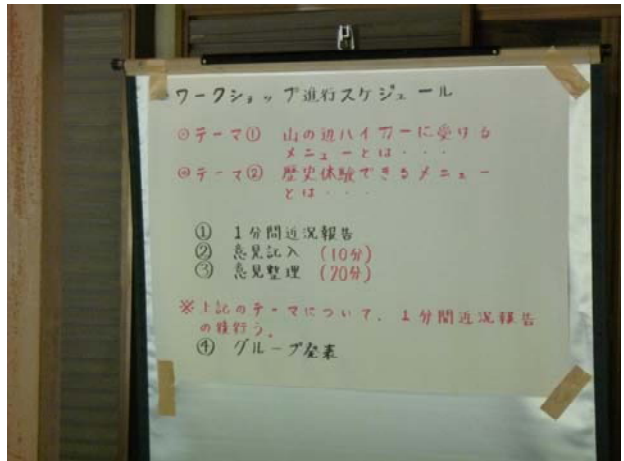 ワークショップ進行スケジュール
◎テーマ① 山の辺ハイカーに受ける
メニューとは・・・
◎テーマ② 歴史体験できるメニュー
とは・・・
① 1分間近況報告
② 意見記入 (10分)
③ 意見整理 (20分)
※上記のテーマについて、1分間近況報告
の後行う。
④ グループ発表